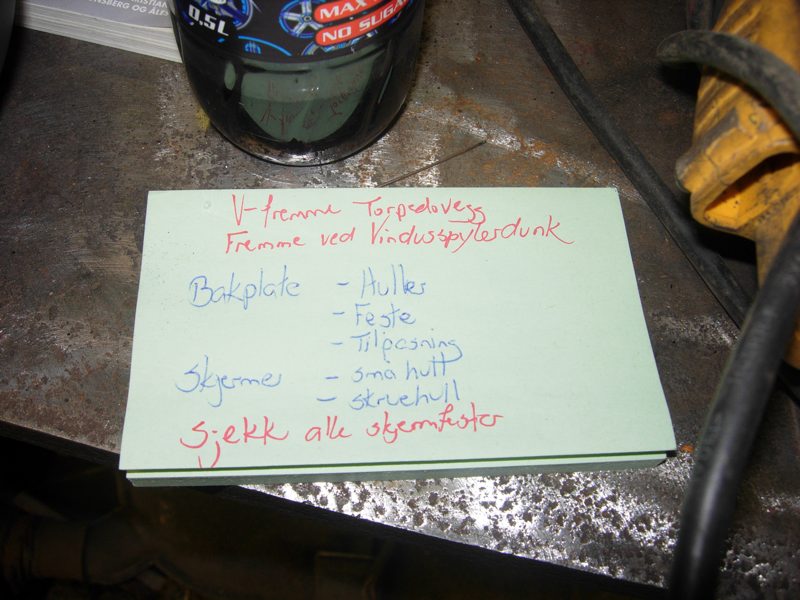 KRISTIAN
ENSBERG OG ÅLES
0.5L
MAX
NO SUGAR
V-fremme Torpedovegg
Fremme ved Vindusspylerdunk
Bakplate - Huller
- Feste
- Tilpasning
Skjermer - små hull
- skruehull
Sjekk alle skjermfester